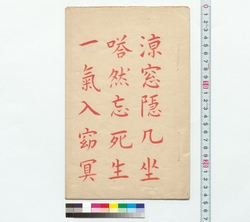 涼窓隠几坐
嗒然忘死生
一氣入窈冥